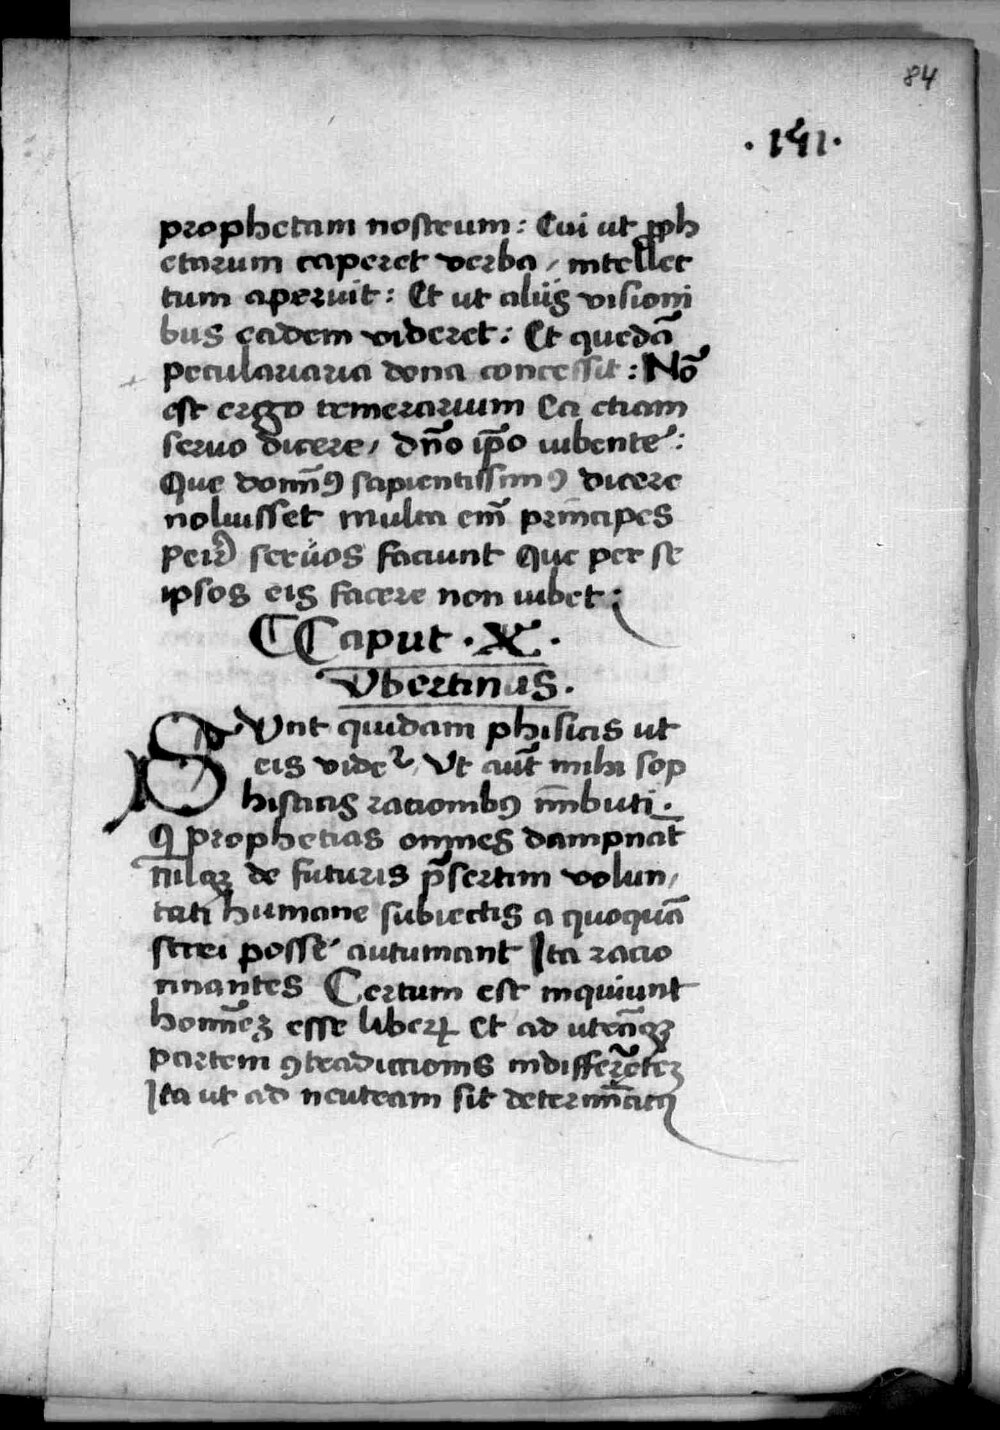 84
·151·
prophetam nostrum : Cui ut ꝓph
etarum caperet verba / intellec
tum aperuit : Et ut aliis visioni
bus eadem videret : Et quedā
peculariaria dona concessit : Nō
est ergo temerarium Ea etiam
seruo dicere / dn̄o ip̄o iubente :
Que domīꝰ sapientissimꝰ dicere
noluisset multa em̄ principes
per seruos faciunt Que per se
ipsos eis facere non iubet :
Caput · X ·
Vbertinus ·
SVnt quidam phisicis ut
eis videt᷑ / Vt aūt mihi sop
histicis racionibꝰ īmbuti ·
Qͥ prophetias omnes dampnāt
nilqꝫ de futuris p̄sertim volun /
tati humane subiectis a quoquā
sciri posse autumant Ita racio
nantes Certum est inquiunt
homīeꝫ esse liberꝝ Et ad utrāqꝫ
partem ꝯtradictionis indifferēteꝫ
Ita ut ad neutram sit determīatꝰ